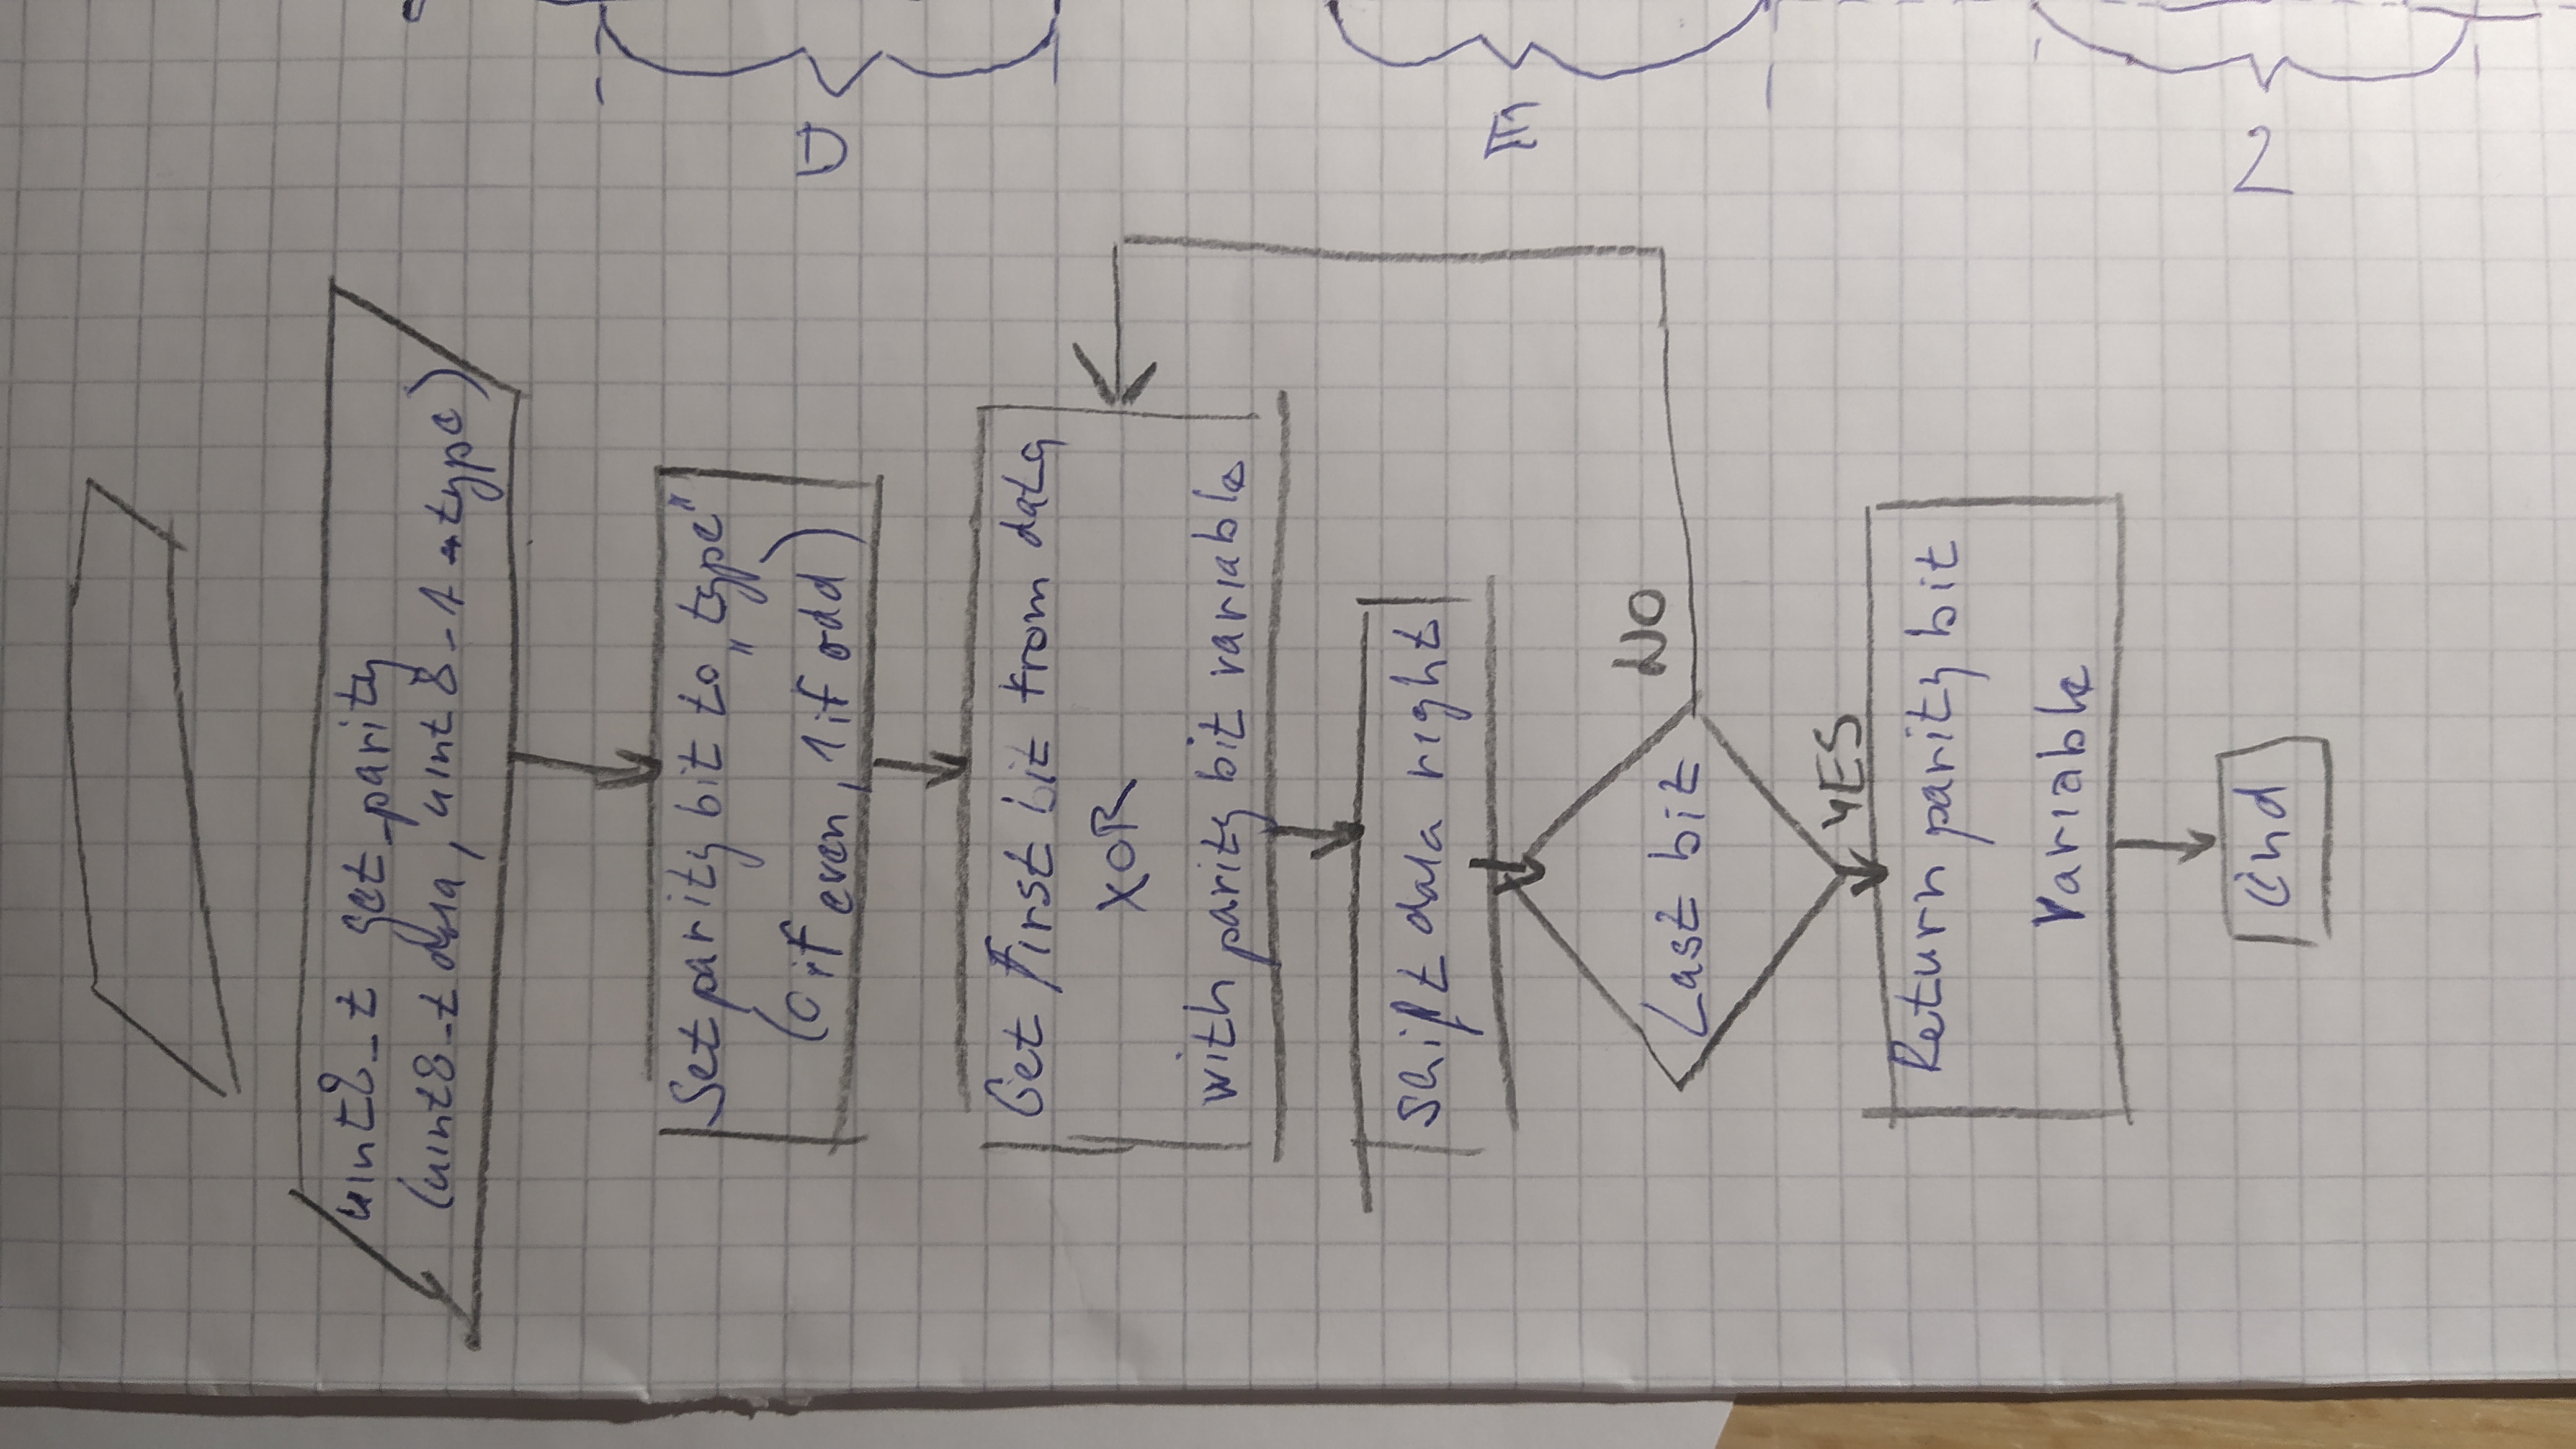 uint8_t get_parity
(uint8_t data, uint8_t type)
Set parity bit to „type"
(0 if even, 1 if odd)
Get first bit from data
XOR
with parity bit variable
Schift data right
Last bit
NO
YES
Return parity bit
Variable
End
U
E
2